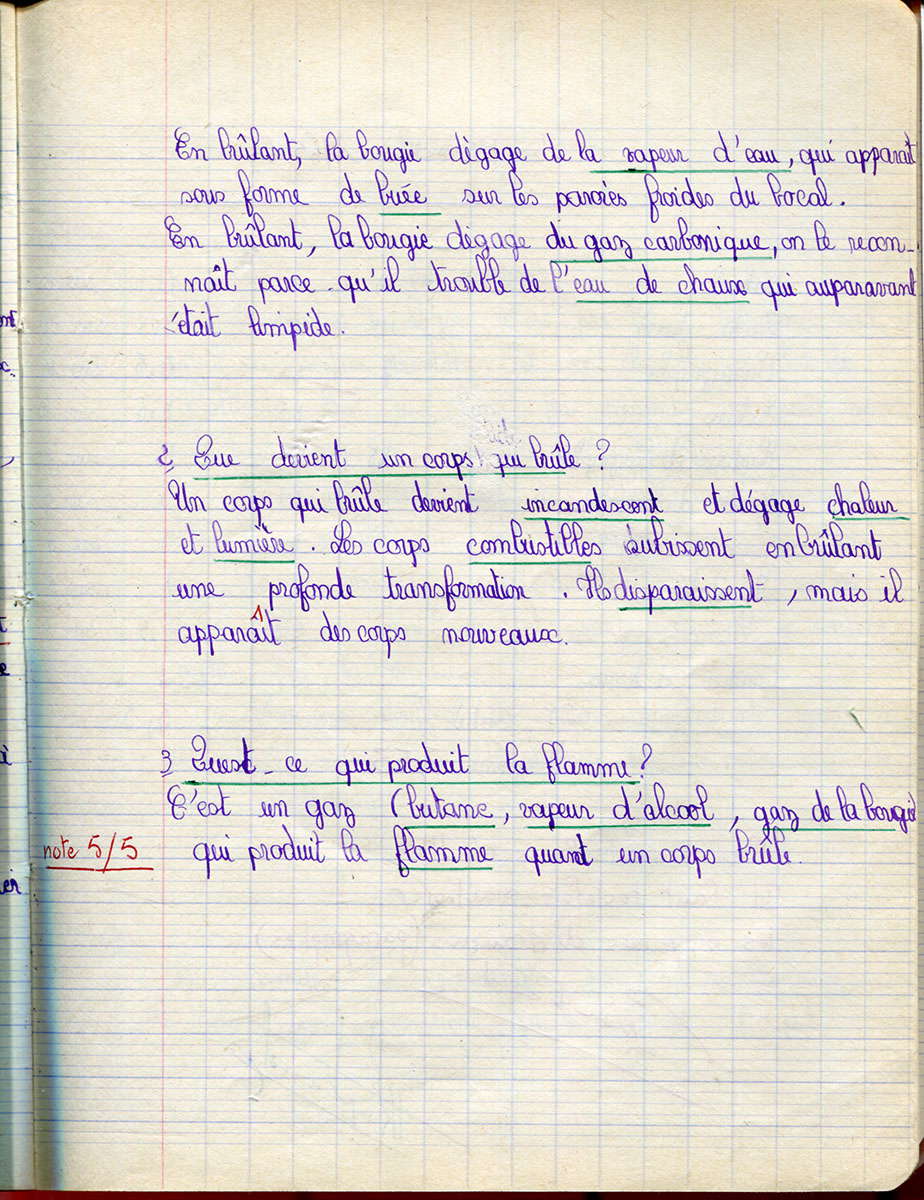 En brûlant, la bougie dégage de la vapeur d'eau, qui apparaît
sous forme de buée sur les parois froides du bocal.
En brûlant, la bougie dégage du gaz carbonique, on le recon-
naît parce qu'il trouble de l'eau de chaux qui auparavant
était limpide.
2 Que devient un corps qui brûle ?
Un corps qui brûle devient incandescent et dégage chaleur
et lumière. Les corps combustibles subissent en brûlant
une profonde transformation. Ils disparaissent, mais il
apparaît des corps nouveaux.
3 Quest-ce qui produit la flamme ?
C'est un gaz (butane, vapeur d'alcool, gaz de la bougie
note 5/5 qui produit la flamme quant un corps brûle.
nt
c.
,
t
e
à
er